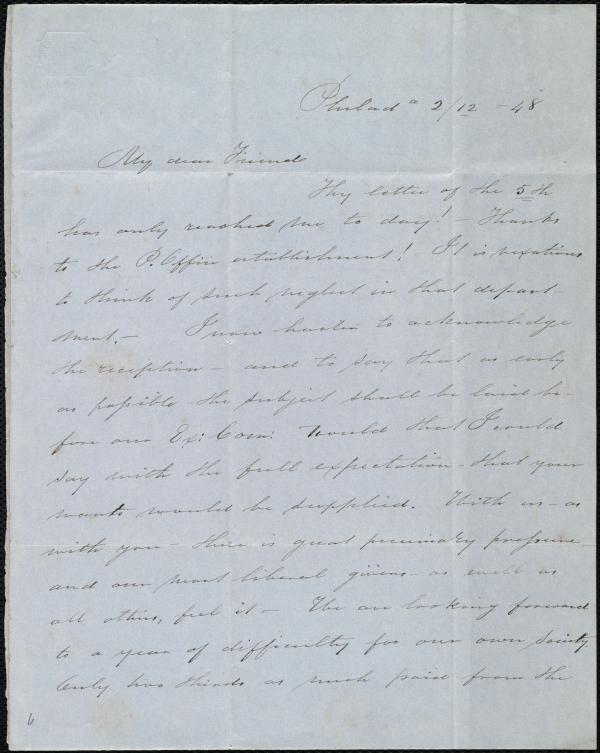 Philada 2/12 - 48
My dear Friend
Thy letter of the 5th
has only reached me to day! - Thanks
to the P. Office establishment! It is vexatious
to think of such neglect in that depart-
ment. - I now hasten to acknowledge
the reception - and to say that as early
as possible the subject shall be laid be-
fore our Ex: Com: Would that I could
say with the full expectation - that your
wants would be supplied. With us - as
with you - there is great pecuniary pressure -
and our most liberal givers - as well as
all others, feel it - We are looking forward
to a year of difficulty for our own society.
Only two thirds as much paid from the
6